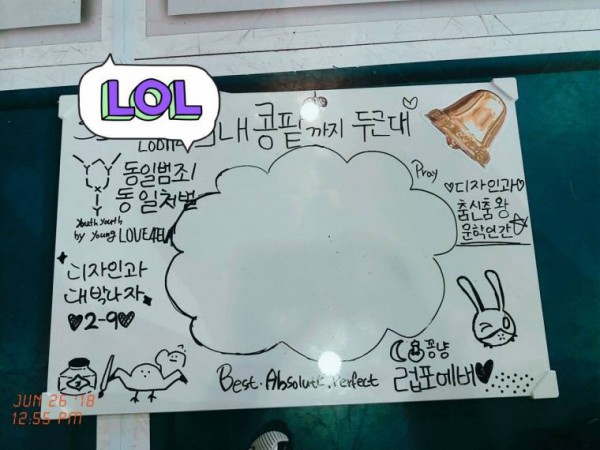 LOL
내 콩팥까지 두근대
동일범죄
동일처벌
Youth Youth
by Young
디자인과
대박나자
♥2-9♥
Pray
♡디자인과♡
춤신춤왕
문학인간
꽁냥
럽포에버♥
Best. Absolute. Perfect
JUN 26 '18
12:55 PM